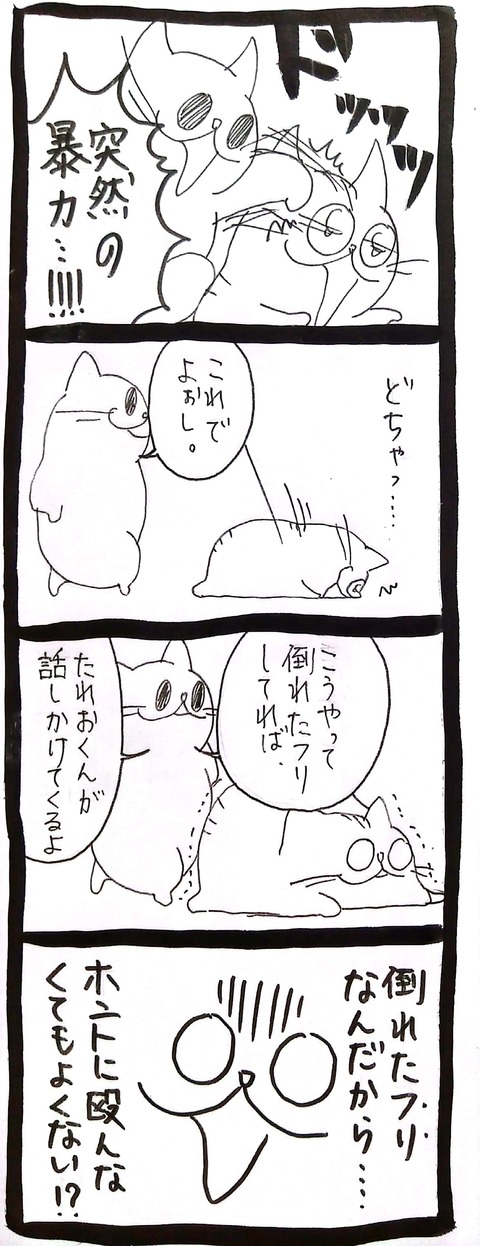 ドドッッッ
突然の
暴力…!!!!
どちゃっ……
これで
よぉし。
こうやって
倒れたフリ
してれば、
たれおくんが
話しかけてくるよ
倒れたフリ
なんだから……
ホントに殴んな
くてもよくない!?